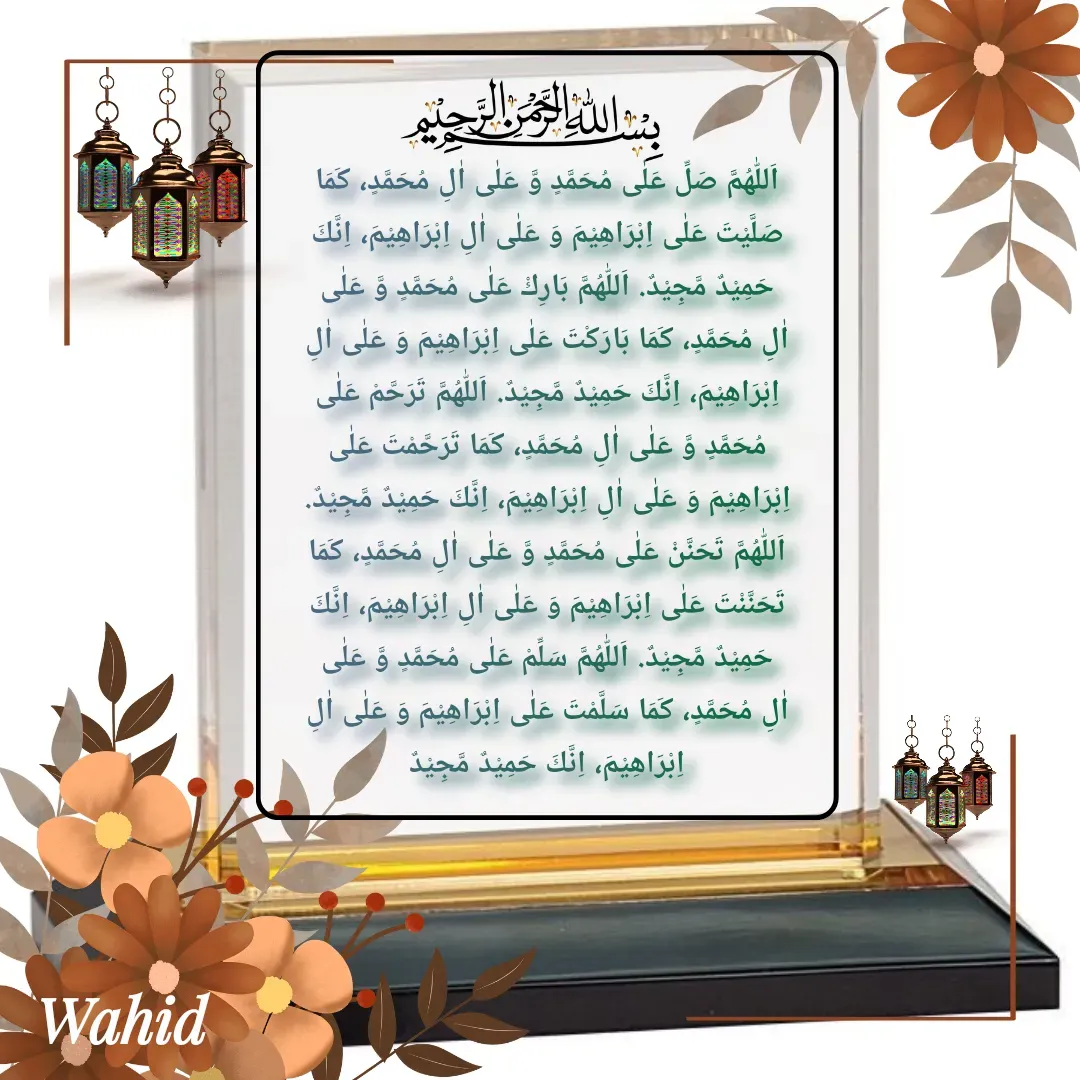 بِسْمِ اللهِ الرَّحْمٰنِ الرَّحِيْمِ
اَللّٰهُمَّ صَلِّ عَلٰى مُحَمَّدٍ وَّ عَلٰى اٰلِ مُحَمَّدٍ، كَمَا
صَلَّيْتَ عَلٰى اِبْرَاهِيْمَ وَ عَلٰى اٰلِ اِبْرَاهِيْمَ، اِنَّكَ
حَمِيْدٌ مَّجِيْدٌ. اَللّٰهُمَّ بَارِكْ عَلٰى مُحَمَّدٍ وَّ عَلٰى
اٰلِ مُحَمَّدٍ، كَمَا بَارَكْتَ عَلٰى اِبْرَاهِيْمَ وَ عَلٰى اٰلِ
اِبْرَاهِيْمَ، اِنَّكَ حَمِيْدٌ مَّجِيْدٌ. اَللّٰهُمَّ تَرَحَّمْ عَلٰى
مُحَمَّدٍ وَّ عَلٰى اٰلِ مُحَمَّدٍ، كَمَا تَرَحَّمْتَ عَلٰى
اِبْرَاهِيْمَ وَ عَلٰى اٰلِ اِبْرَاهِيْمَ، اِنَّكَ حَمِيْدٌ مَّجِيْدٌ.
اَللّٰهُمَّ تَحَنَّنْ عَلٰى مُحَمَّدٍ وَّ عَلٰى اٰلِ مُحَمَّدٍ، كَمَا
تَحَنَّنْتَ عَلٰى اِبْرَاهِيْمَ وَ عَلٰى اٰلِ اِبْرَاهِيْمَ، اِنَّكَ
حَمِيْدٌ مَّجِيْدٌ. اَللّٰهُمَّ سَلِّمْ عَلٰى مُحَمَّدٍ وَّ عَلٰى
اٰلِ مُحَمَّدٍ، كَمَا سَلَّمْتَ عَلٰى اِبْرَاهِيْمَ وَ عَلٰى اٰلِ
اِبْرَاهِيْمَ، اِنَّكَ حَمِيْدٌ مَّجِيْدٌ
Wahid